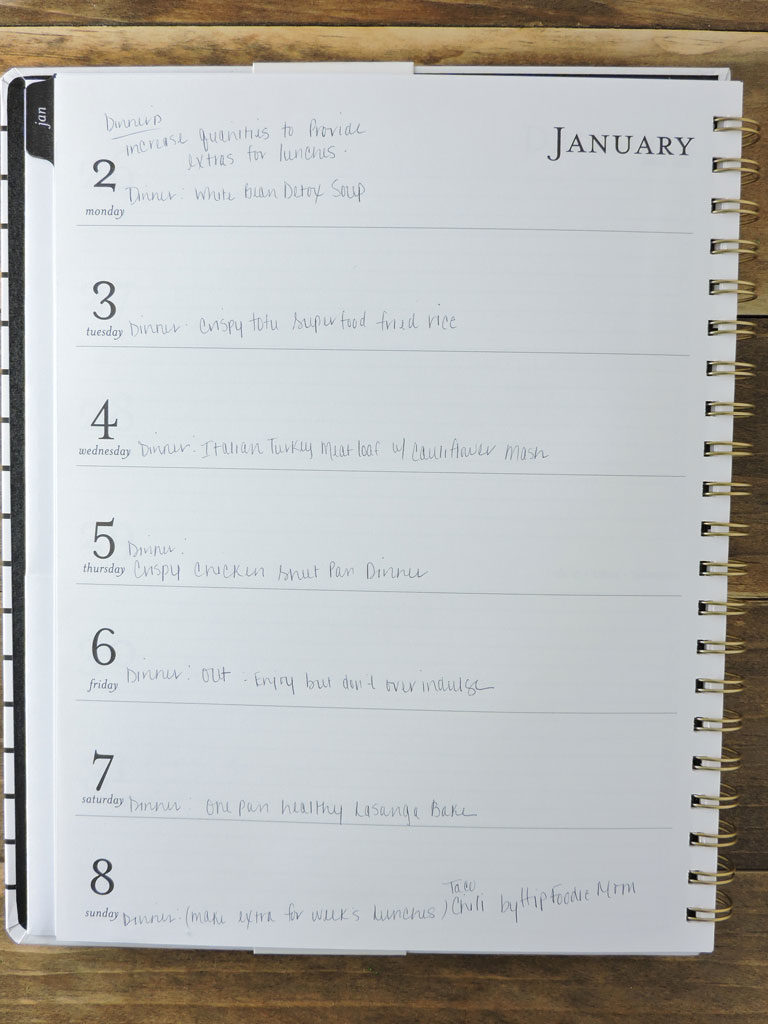 jan
JANUARY
Dinner's
increase quanities to Provide
extras for lunches.
2
monday
Dinner: White Bean Detox Soup
3
tuesday
Dinner: Crispy tofu superfood fried rice
4
wednesday
Dinner: Italian Turkey Meatloaf w/ cauliflower mash
5
thursday
Dinner:
Crispy Chicken Sheet Pan Dinner
6
friday
Dinner: Out - Enjoy but don't over indulge
7
saturday
Dinner: One pan healthy Lasanga Bake
8
sunday
Dinner: (make extra for week's lunches) Taco Chili by Hip Foodie Mom